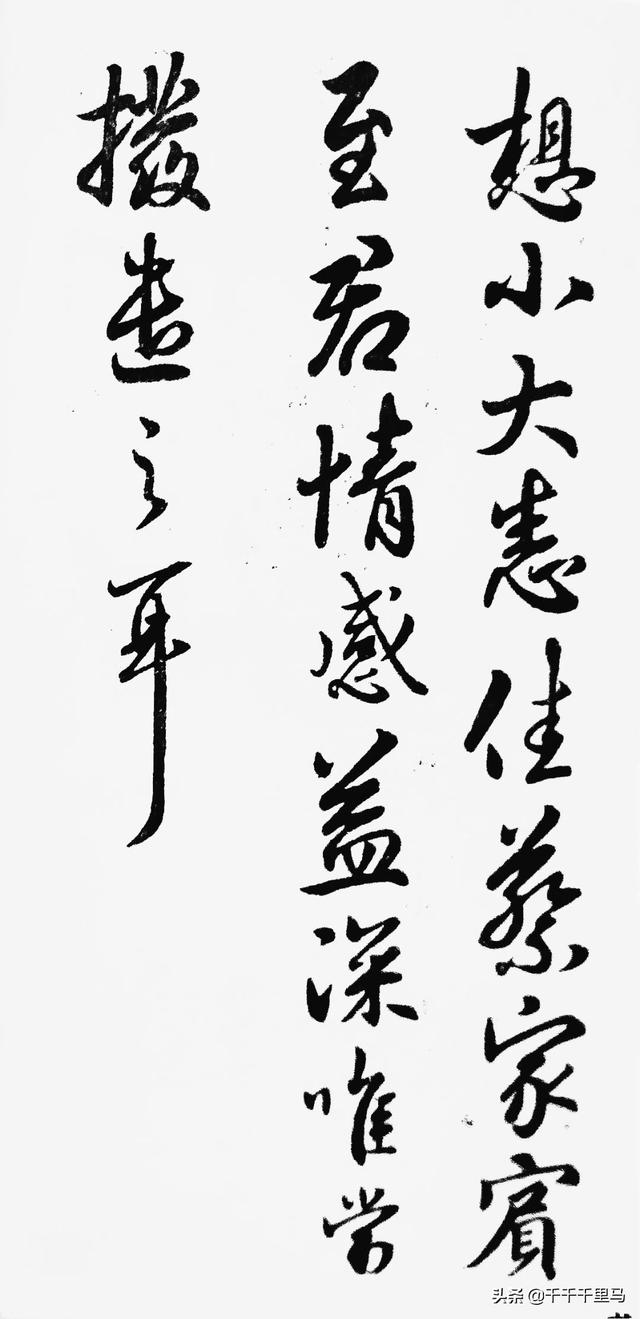 想小大悉佳蔡家賓
至君情感益深唯當
撥遣之耳
头条 @千千千里马